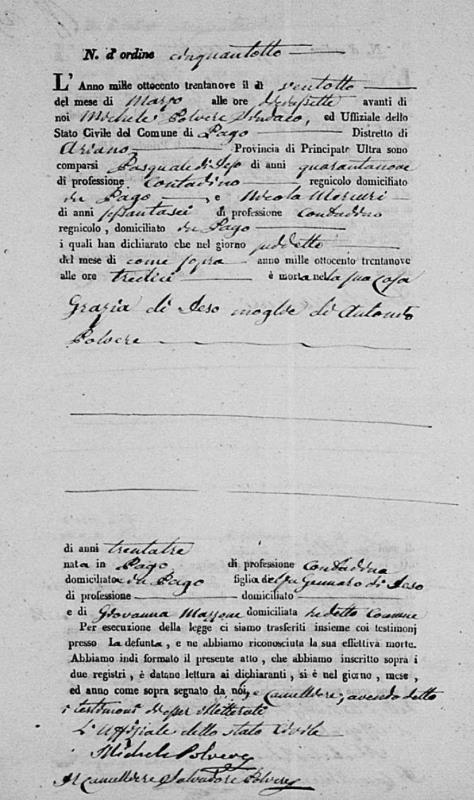 N. d'ordine cinquantotto
L'Anno mille ottocento trentanove il dì ventotto
del mese di Marzo alle ore diciasette avanti di
noi Michele Polvere Sindaco, ed Uffiziale dello
Stato Civile del Comune di Pago Distretto di
Ariano Provincia di Principato Ultra sono
comparsi Pasquale di Ieso di anni quarantanove
di professione Contadino regnicolo domiciliato
in Pago, e Nicola Mercuri
di anni sessantasei di professione Contadino
regnicolo, domiciliato in Pago
i quali han dichiarato che nel giorno suddetto
del mese di come sopra anno mille ottocento trentanove
alle ore tredici è morta nella sua casa
Grazia di Ieso moglie di Antonio
Polvere
di anni trentatre
nata in Pago di professione Contadina
domiciliata in Pago figlia del fu Gennaro di Ieso
di professione domiciliato
e di Giovanna Mazzone domiciliata in detto Comune
Per esecuzione della legge ci siamo trasferiti insieme coi testimonj
presso La defunta, e ne abbiamo riconosciuta la sua effettiva morte.
Abbiamo indi formato il presente atto, che abbiamo inscritto sopra i
due registri, è datane lettura ai dichiaranti, si è nel giorno, mese,
ed anno come sopra segnato da noi, e Cancelliere, avendo detto
i testimoni di esser illetterati
L'Uffiziale dello Stato Civile
Michele Polvere
Il Cancelliere Salvadore Polvere